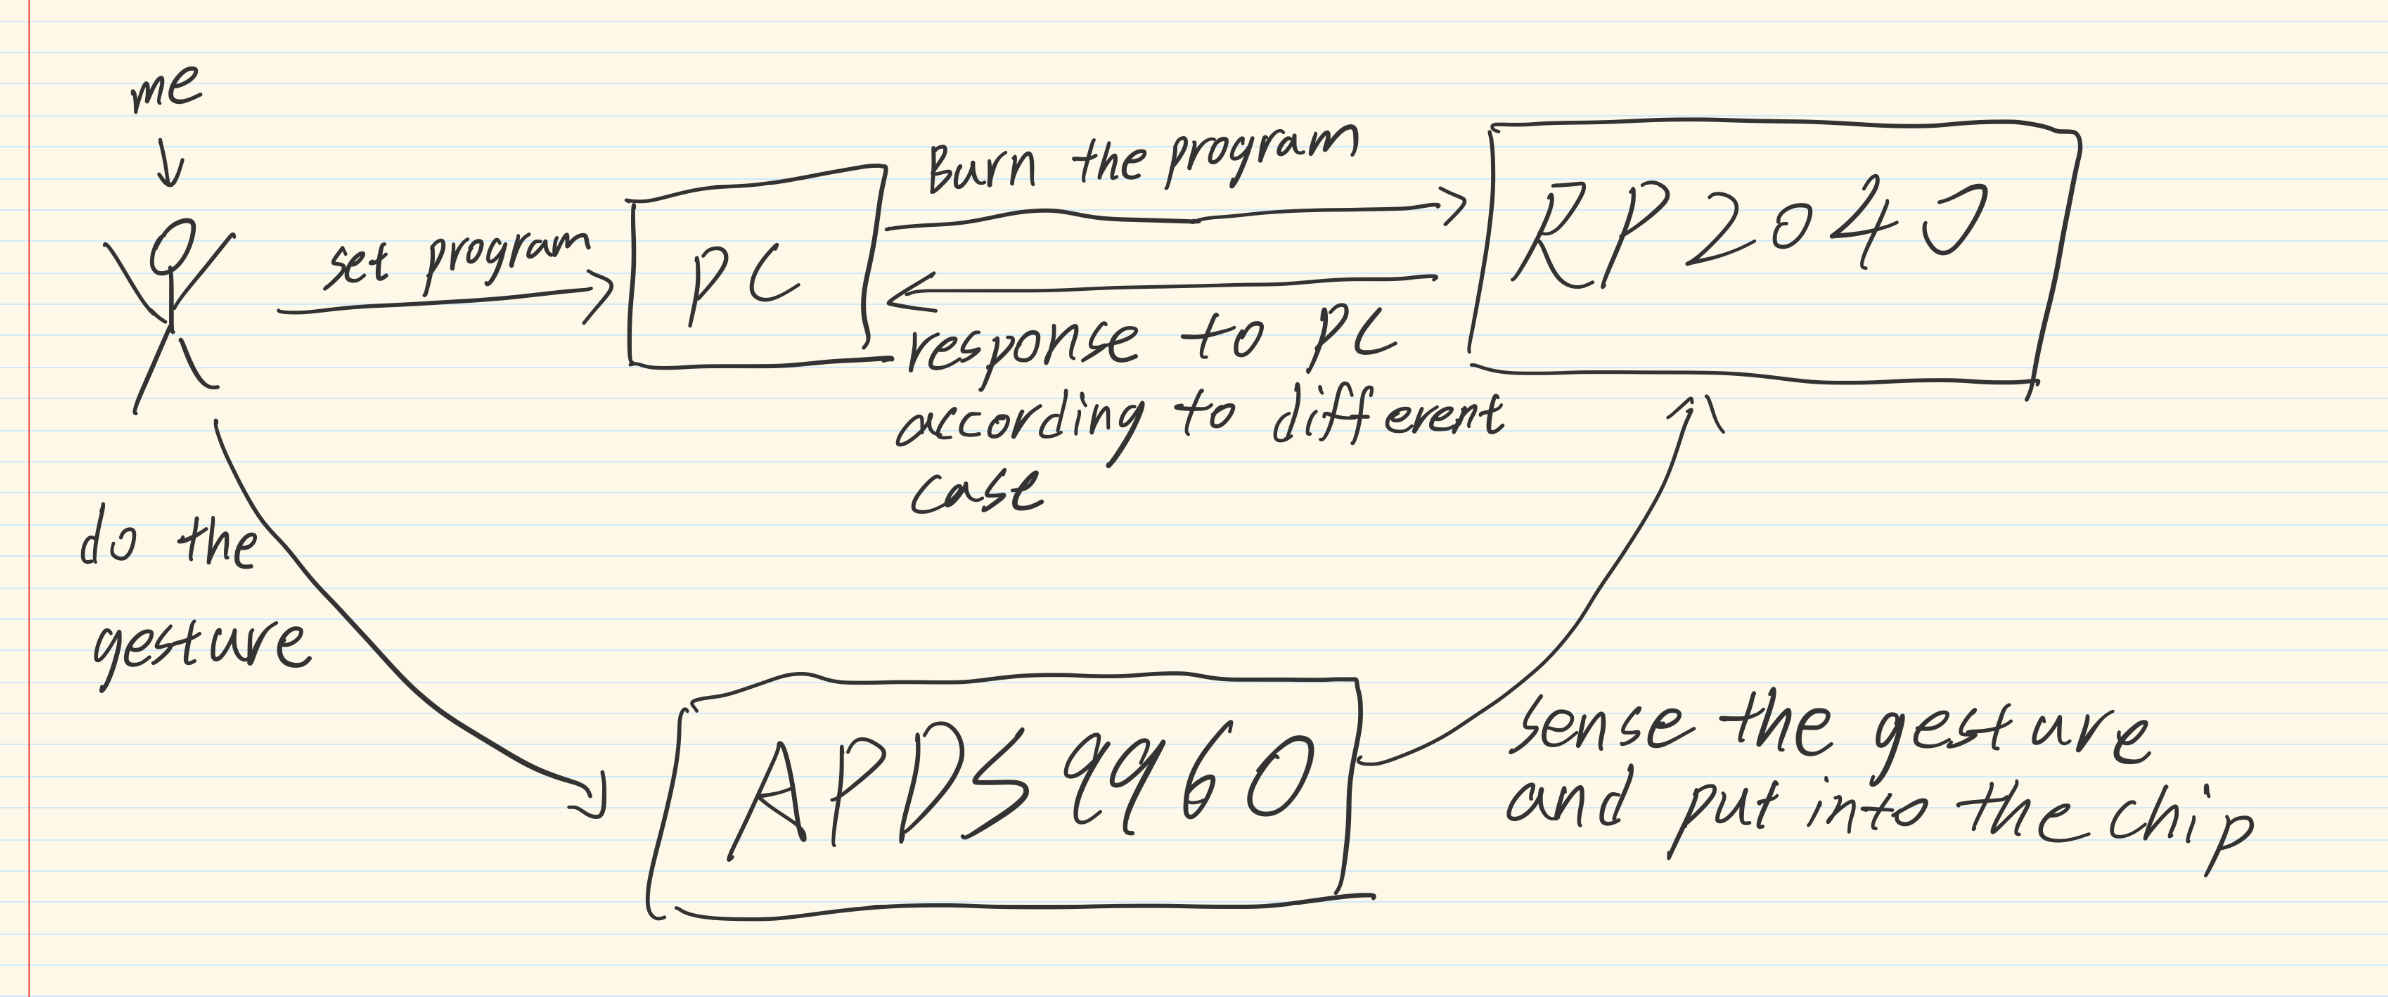 me
set program
PC
Burn the program
RP2040
response to PC
according to different
case
do the
gesture
APDS9960
sense the gesture
and put into the chip